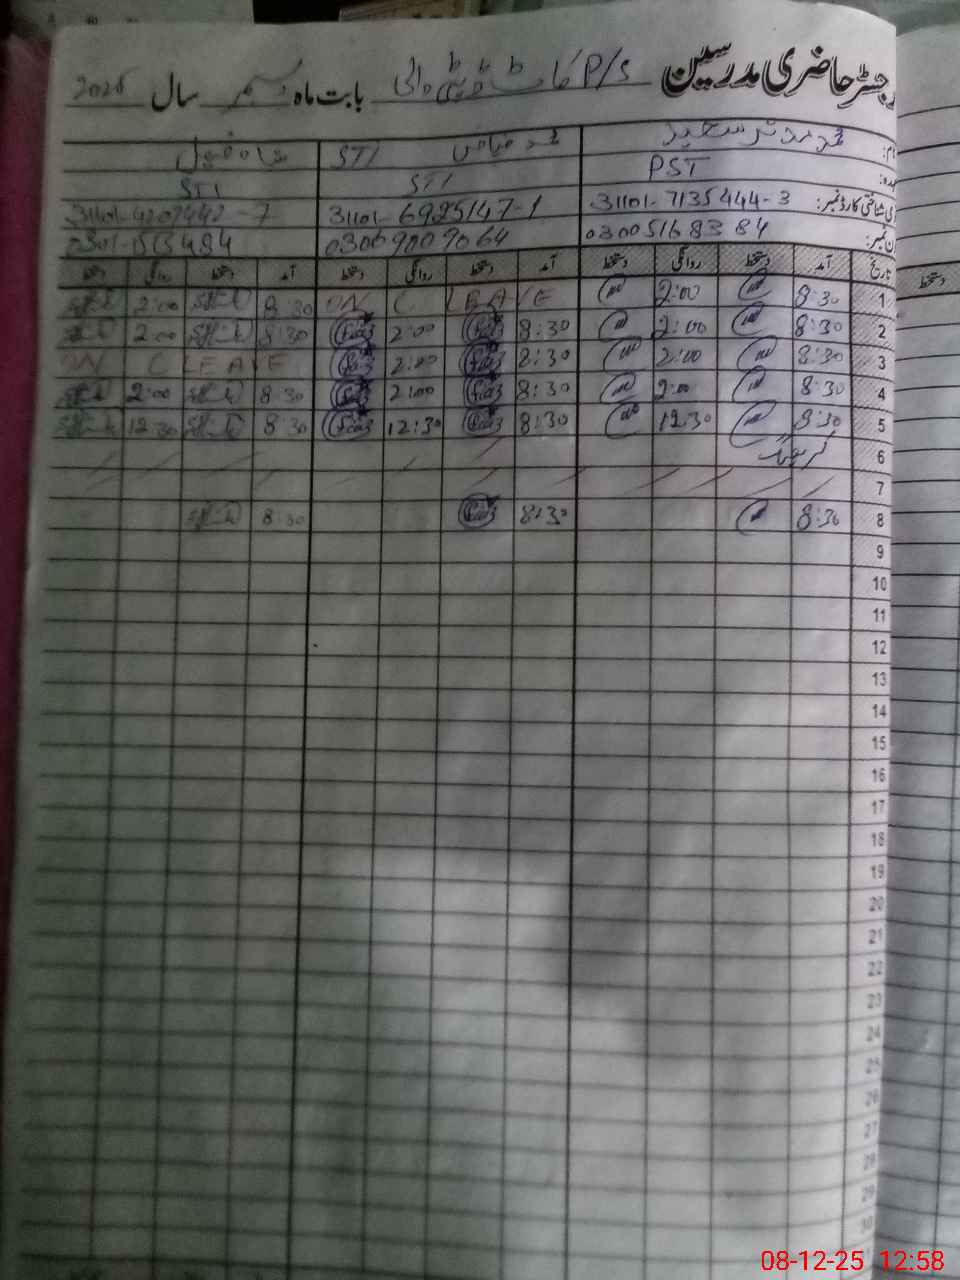 رجسٹر حاضری مدرسین P/S بابت ماہ دسمبر سال
نام: محمد مدثر سعید محمد فیاض STI
عہدہ: PST STI STI
شناختی کارڈ نمبر: 31101-7135444-3 31101-6925147-1 31101-4207442-7
فون نمبر: 03005168384 03069009064
تاریخ آمد دستخط روانگی دستخط آمد دستخط روانگی دستخط آمد دستخط روانگی دستخط
1 8:30 2:00 ON C LEAVE 8:30 2:00
2 8:30 2:00 8:30 Fiaz 2:00 Fiaz 8:30 2:00
3 8:30 2:00 8:30 Fiaz 2:00 Fiaz ON C LEAVE
4 8:30 2:00 8:30 Fiaz 2:00 Fiaz 8:30 2:00
5 8:30 12:30 8:30 Fiaz 12:30 Fiaz 8:30 12:30
6
7
8 8:30 8:30 Fiaz 8:30
9
10
11
12
13
14
15
16
17
18
19
20
21
22
23
24
25
26
27
28
29
30
دستخط
08-12-25 12:58